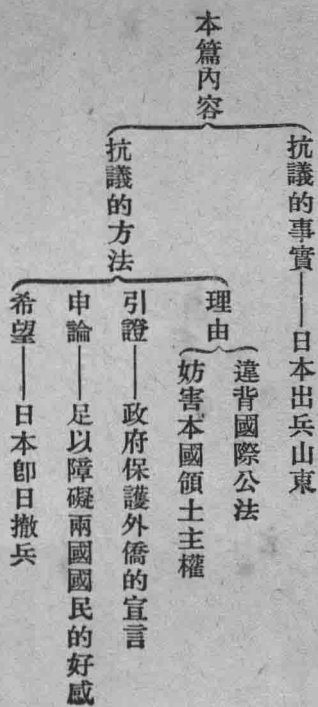 本篇內容
抗議的事實——日本出兵山東
抗議的方法
理由
違背國際公法
妨害本國領土主權
引證——政府保護外僑的宣言
申論——足以障礙兩國國民的好感
希望——日本卽日撤兵